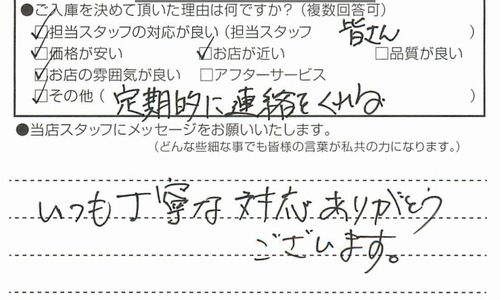 ●ご入庫を決めて頂いた理由は何ですか?(複数回答可)
☑担当スタッフの対応が良い(担当スタッフ 皆さん )
☑価格が安い ☑お店が近い □品質が良い
☑お店の雰囲気が良り □アフターサービス
☑その他( 定期的に連絡をくれる )
●当店スタッフにメッセージをお願いいたします。
(どんな些細な事でも皆様の言葉が私共の力になります。)
いつも丁寧な対応ありがとう
ございます。